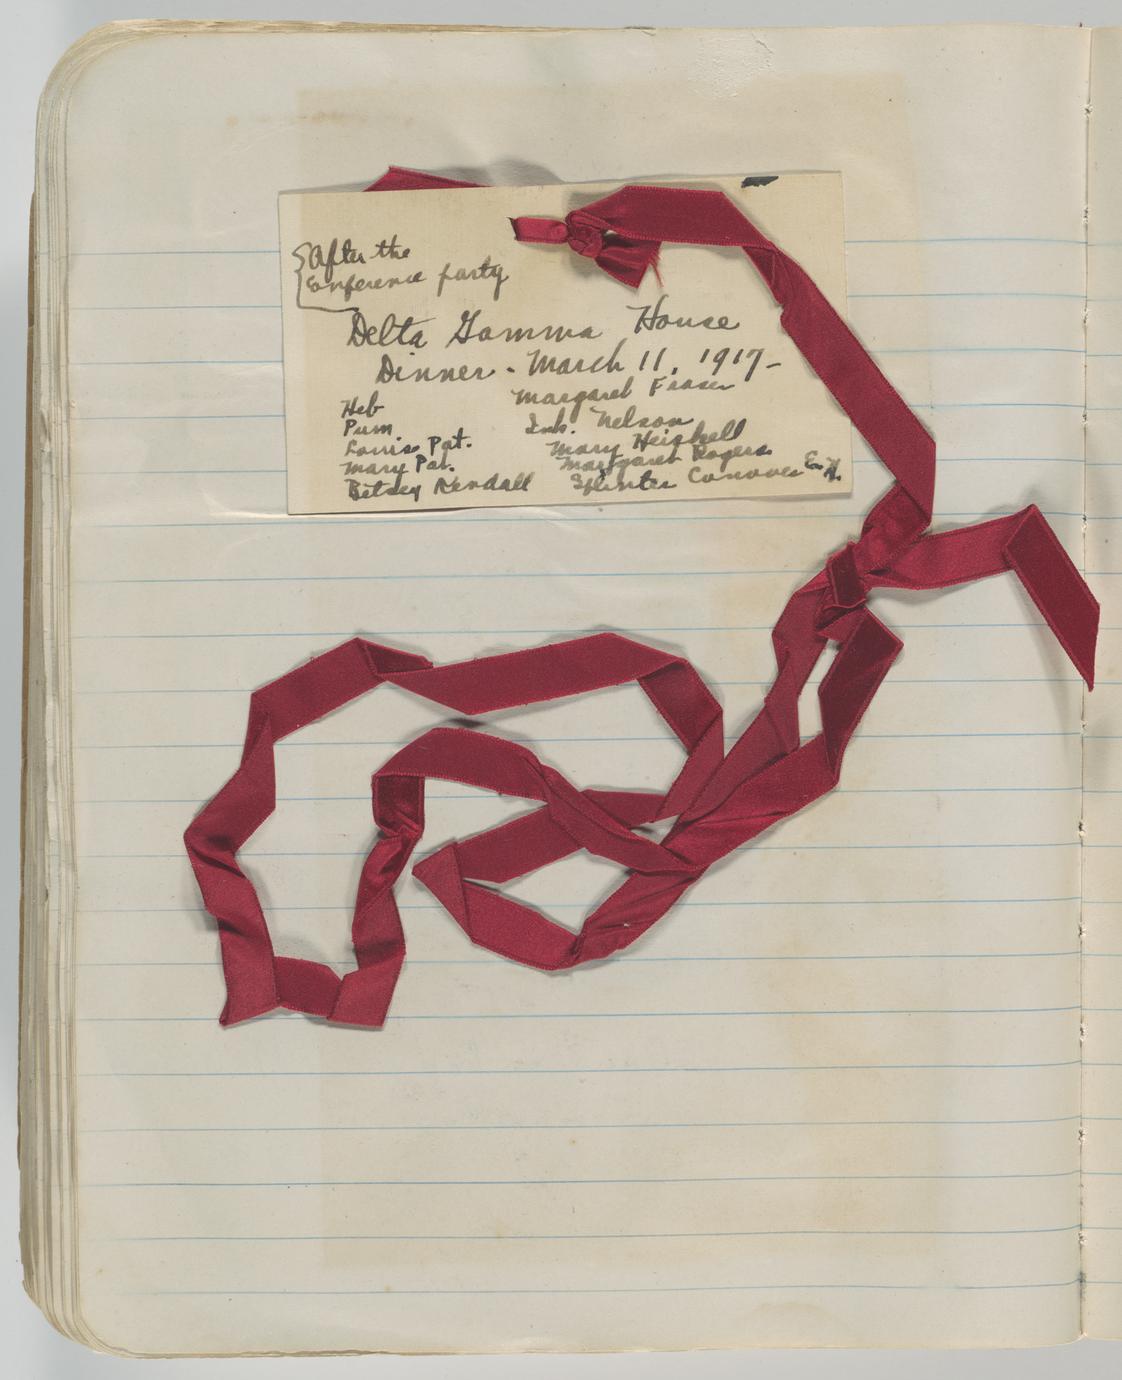 After the
Conference party
Delta Gamma House
Dinner - March 11, 1917 -
Heb
Pum
Louis Pat.
Mary Pat.
Betsey Kendall
Margaret Fraser
Nelson
Mary Heiskell
Margaret Rogers
Splinter Conover